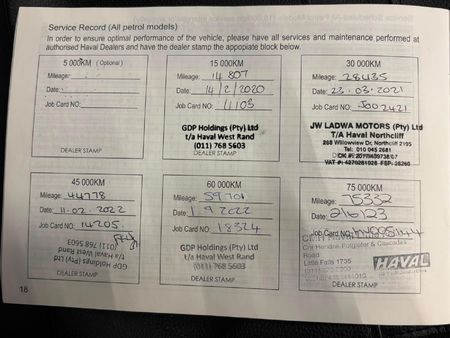 Service Record (All petrol models)
In order to ensure optimal performance of the vehicle, please have all services and maintenance performed at
authorised Haval Dealers and have the dealer stamp the appopiate block below.
5 000KM ( Optional )
Mileage:
Date:
Job Card NO:
DEALER STAMP
15 000KM
Mileage: 14 807
Date: 14/2/2020
Job Card NO: 11103
GDP Holdings (Pty) Ltd
t/a Haval West Rand
(011) 768 5603
DEALER STAMP
30 000KM
Mileage: 28435
Date: 23-03-2021
Job Card NO: J002421
JW LADWA MOTORS (Pty) Ltd
T/A Haval Northcliff
268 Willowview Dr, Northcliff 2195
Tel: 010 045 2681
DEALER STAMP
45 000KM
Mileage: 44778
Date: 11-02-2022
Job Card NO: 14205
GDP Holdings (Pty) Ltd
t/a Haval West Rand
(011) 768 5603
DEALER STAMP
60 000KM
Mileage: 59701
Date: 1 9 2022
Job Card NO: 18324
GDP Holdings (Pty) Ltd
t/a Haval West Rand
(011) 768 5603
DEALER STAMP
75 000KM
Mileage: 75332
Date: 2/6/23
Job Card NO:
Road
Little Falls 1735
HAVAL
DEALER STAMP
18